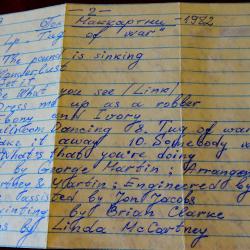 - 2 -
Маккартни - 1982
LP - "Tug of war"
The pound is sinking
Wanderlust
Get it
What you see / Link /
Dress me up as a robber
Ebony and Ivory
Ballroom Dancing 8. Tug of war
Take it away 10. Somebody w
What's that you're doing
by George Martin; Arranged
rtney & Martin; Engineered by
Assisted by Jon Jacobs
ainting by Brian Clarke
s by Linda McCartney